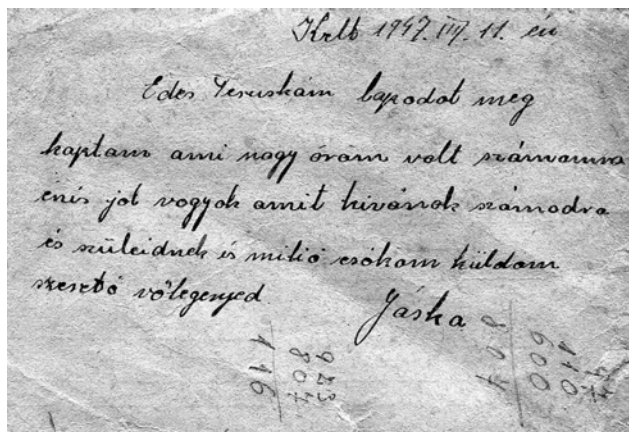 Krlb 1947. III. 11. én
Edes Teruskám lapodot meg
kaptam ami nagy öröm volt számomra
énis jol vagyok amit kivánok számodra
és szüleidnek is milió csókom küldom
szerető vőlegenyed
Jáska
923
807
116
110
600